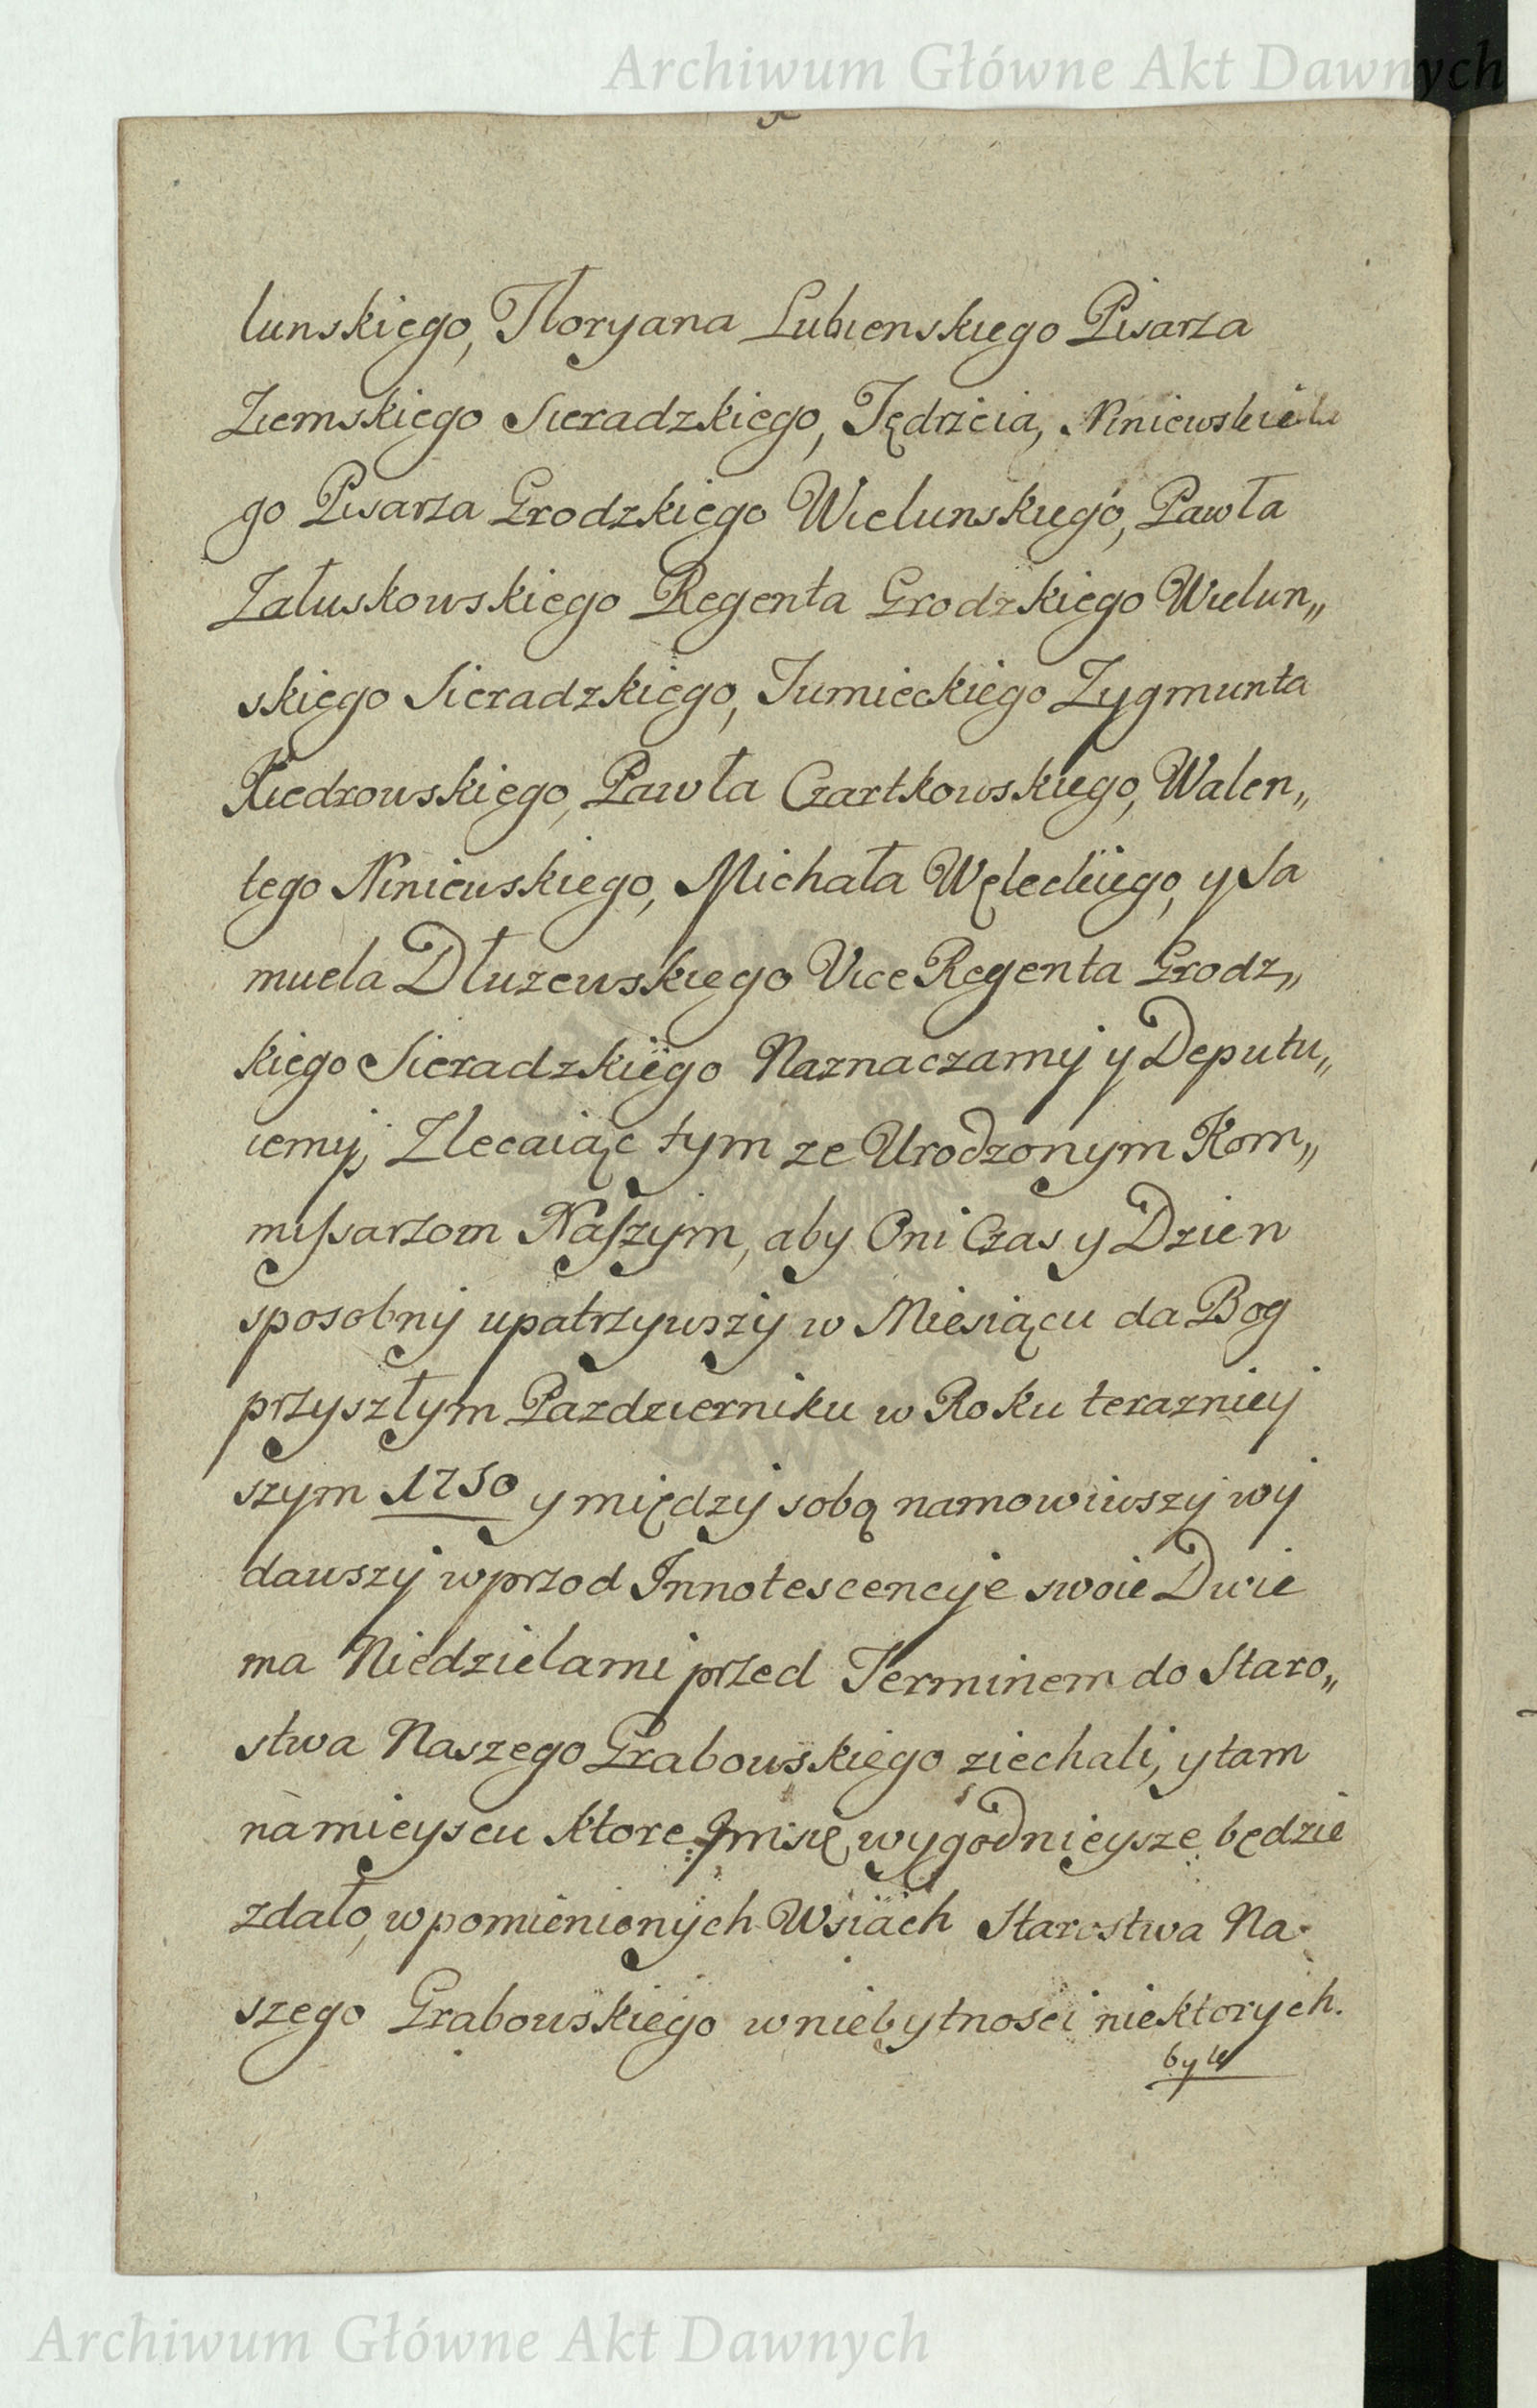 Archiwum Główne Akt Dawnych
lunskiego, Floryana Lubienskiego Pisarza
Ziemskiego Sieradzkiego, Jędrzeia, Niniewskie
go Pisarza Grodzkiego Wielunskiego, Pawła
Załuskowskiego Regenta Grodzkiego Wielun„
skiego Sieradzkiego, Tumieckiego Zygmunta
Kiedrowskiego, Pawła Czartkowskiego, Walen„
tego Niniewskiego, Michała Węleckiego, y Sa
muela Dłuzewskiego Vice Regenta Grodz„
kiego Sieradzkiego Naznaczamy y Deputu„
iemy, Zlecaiąc tym ze Urodzonym Kom„
missarzom Naszym, aby Oni Czas y Dzien
sposobny upatrzywszy w Miesiącu da Bog
przyszłym Pazdzierniku w Roku terazniey
szym 1750 y między sobą namowiwszy wy
dawszy wprzod Innotescencye swoie Dwie
ma Niedzielami przed Terminem do Staro„
stwa Naszego Grabowskiego ziechali, y tam
na mieyscu ktore Im się wygodnieysze będzie
zdało, w pomienionych Wsiach Starostwa Na
szego Grabowskiego w niebytnosci niektorych.
były
Archiwum Główne Akt Dawnych